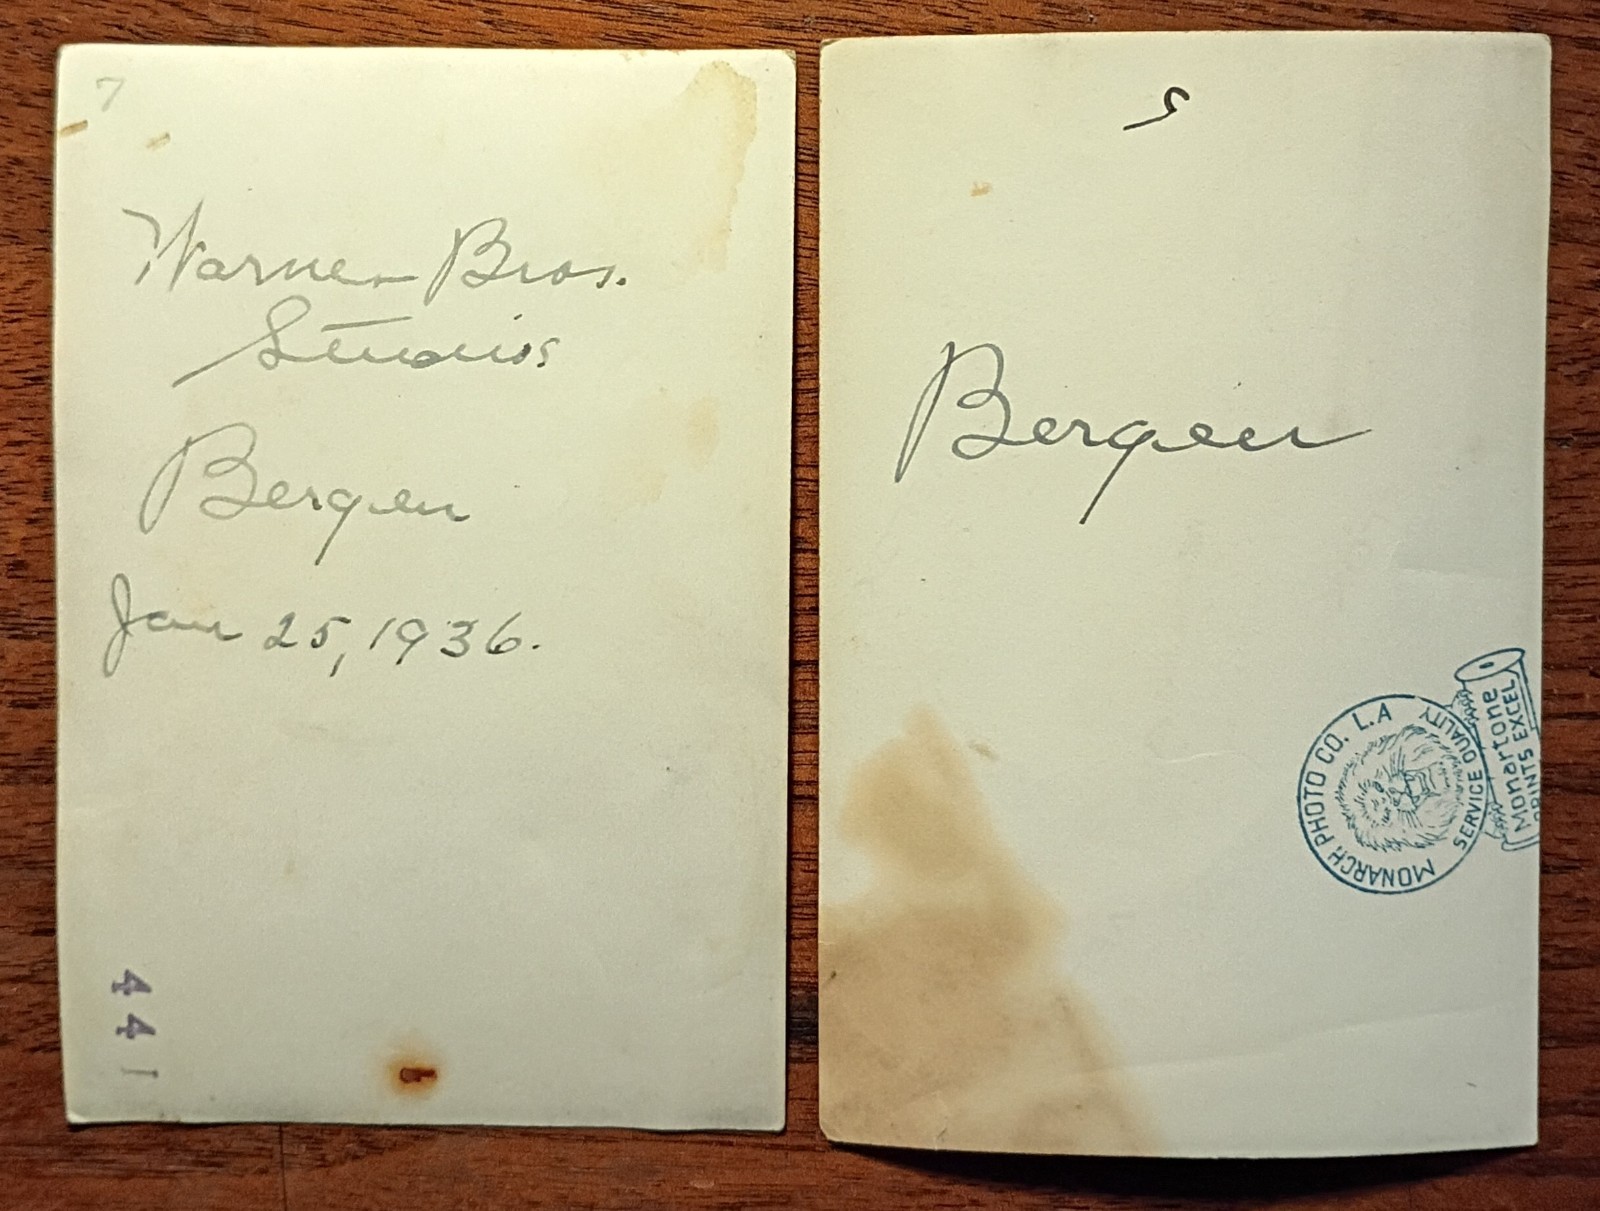 7
Warner Bros.
Studios
Bergen
Jan 25, 1936.
441
Bergen
MONARCH PHOTO CO. L.A
SERVICE QUALITY
Monartone
PRINTS EXCEL